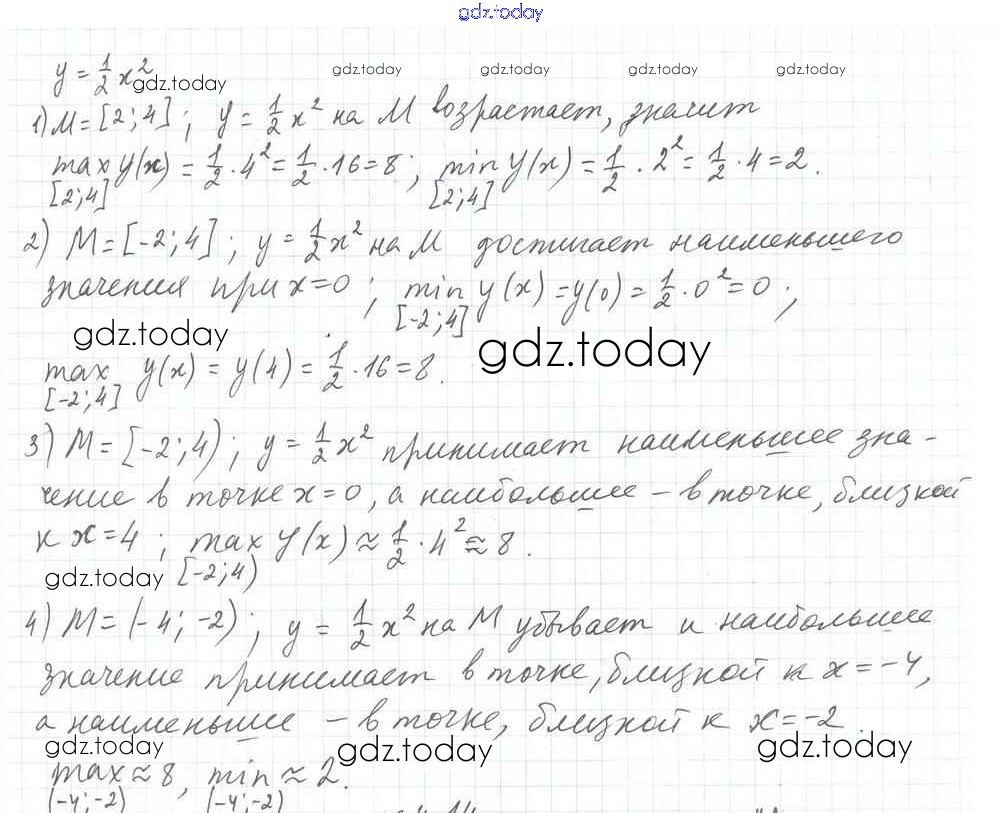 gdz.today
y = 1/2 x²
gdz.today gdz.today gdz.today gdz.today gdz.today
1) M = [2; 4]; y = 1/2 x² на M возрастает, значит
max y(x) = 1/2 · 4² = 1/2 · 16 = 8; min y(x) = 1/2 · 2² = 1/2 · 4 = 2.
[2; 4] [2; 4]
2) M = [-2; 4]; y = 1/2 x² на M достигает наименьшего
значения при x = 0; min y(x) = y(0) = 1/2 · 0² = 0;
[-2; 4]
gdz.today gdz.today
max y(x) = y(4) = 1/2 · 16 = 8.
[-2; 4]
3) M = [-2; 4); y = 1/2 x² принимает наименьшее зна-
чение в точке x = 0, а наибольшее – в точке, близкой
к x = 4; max y(x) ≈ 1/2 · 4² ≈ 8.
gdz.today [-2; 4)
4) M = (-4; -2); y = 1/2 x² на M убывает и наибольшее
значение принимает в точке, близкой к x = -4,
а наименьшее – в точке, близкой к x = -2.
gdz.today gdz.today gdz.today
max ≈ 8, min ≈ 2.
(-4; -2) (-4; -2)